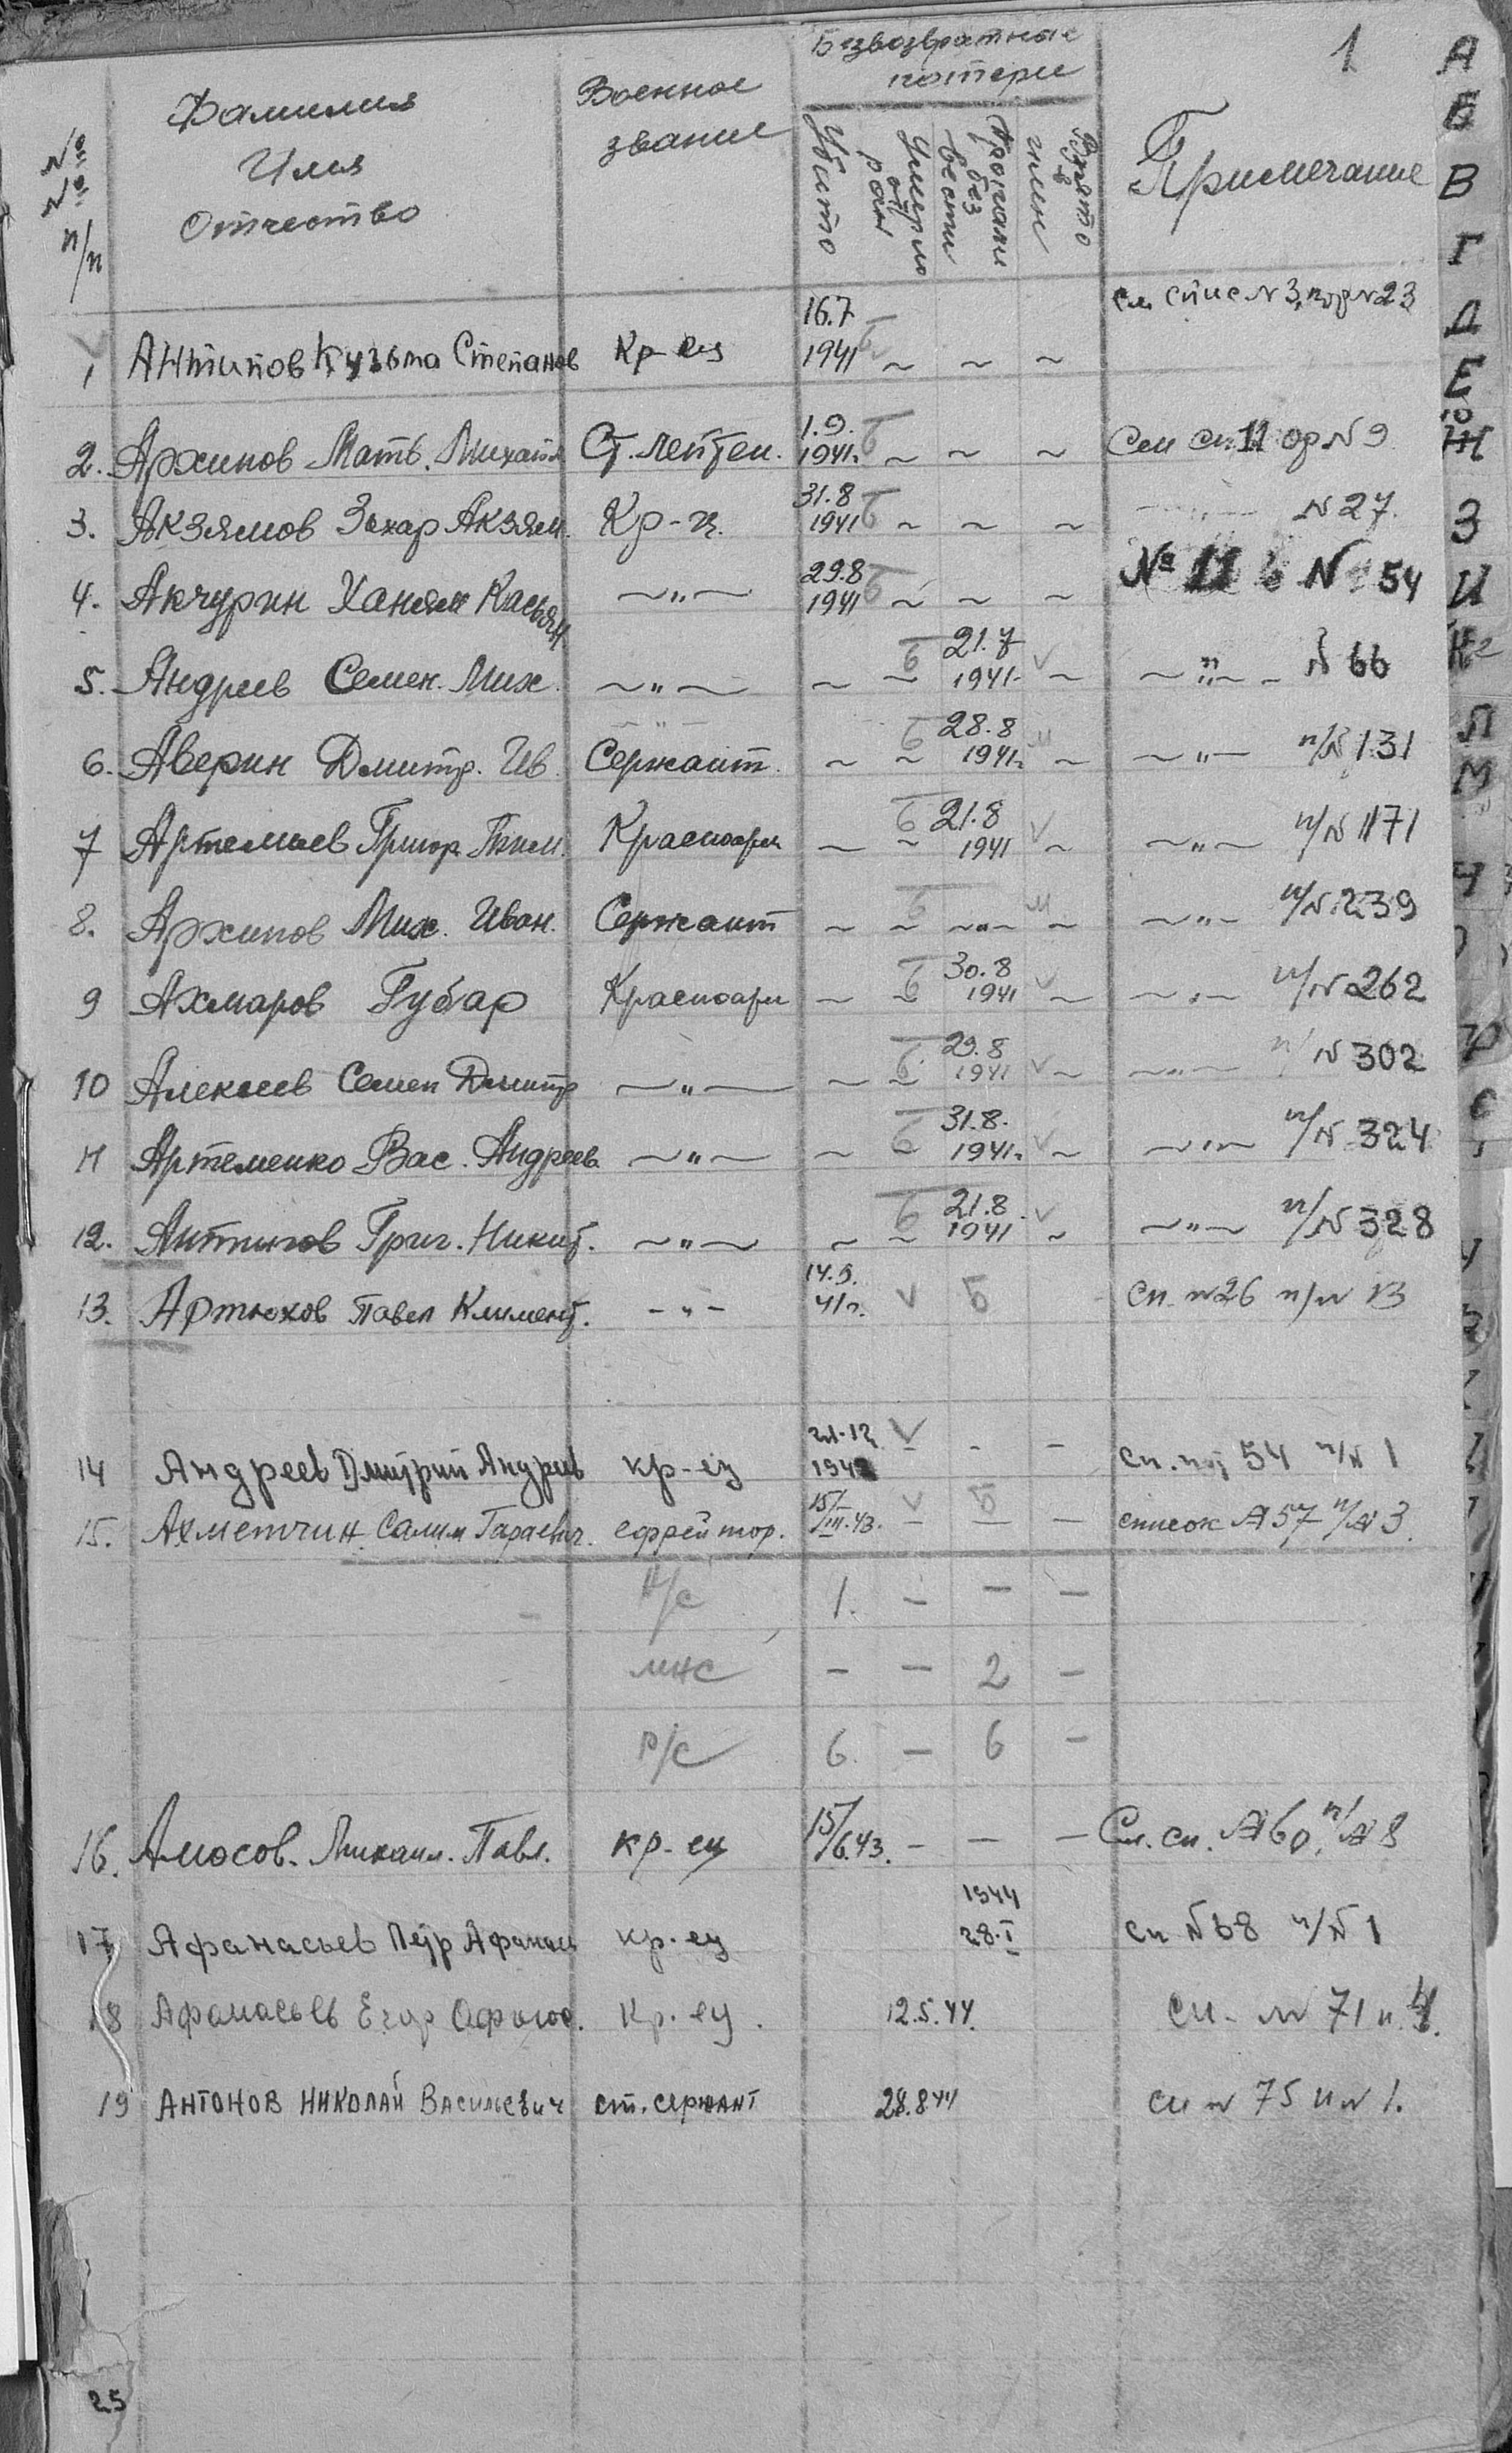 1
№ № п/п
Фамилия Имя Отчество
Военное звание
Безвозвратные потери
Убито
Умерло от ран
Пропали без вести
Взято в плен
Примечание
1 Антипов Кузьма Степанов Кр-ец 16.7 1941 ~ ~ ~ См спис N 3, пор N 23
2. Архипов Матв. Михайл Ст. лейтен. 1.9. 1941г. ~ ~ ~ См сп. 11 ор N 9
3. Акзямов Захар Акзям. Кр-ц. 31.8 1941 ~ ~ ~ —„— N 27.
4. Акчурин Ханям Касьян —„— 29.8 1941 ~ ~ ~ № 11 N 54
5. Андреев Семен. Мих. —„— ~ ~ 21.7 1941 ~ —„— N 66
6. Аверин Дмитр. Ив. Сержант. ~ ~ 28.8 1941г. ~ —„— п/N 131
7 Артемьев Григор. Красноарм — ~ 21.8 1941 ~ —„— п/N 171
8. Архипов Мих. Иван. Сержант ~ ~ ~„~ ~ —„— п/N 239
9 Ахмаров Губар Красноарм — ~ 30.8 1941 ~ —„— п/N 262
10 Алексеев Семен Дмитр —„— ~ ~ 29.8 1941 ~ —„— п/N 302
11 Артеменко Вас. Андреев. —„— ~ ~ 31.8. 1941г. ~ —„— п/N 324
12. Антипов Григ. Никит. —„— ~ ~ 21.8 1941 ~ —„— п/N 328
13. Артюхов Павел Климент. -„- 14.9. 41г. V Б сп. N 26 п/N 13
14 Андреев Дмитрий Андреев кр-ец 21.12 1942 V - - - сп. 54 п/N 1
15. Ахметчин Салим Гараевич. ефрейтор. 15/III.43. V Б – – – список № 57 п/№ 3.
Н/С 1. – – –
МНС – – 2 –
Р/С 6. – 6 –
16. Амосов. Михаил. Павл. кр-ец 15/6.43. – – – См. сп. № 60, п/№ 8
17 Афанасьев Петр Афанась кр-ец 1944 28.I сп N 68 п/N 1
18 Афанасьев Егор Афанас. Кр-ец. 12.5.44. сп. N 71 п. 4.
19 Антонов Николай Васильевич ст. сержант 28.8 44 сп N 75 п N 1.
25
А
Б
В
Г
Д
Е
Ж
З
И
К
Л
М